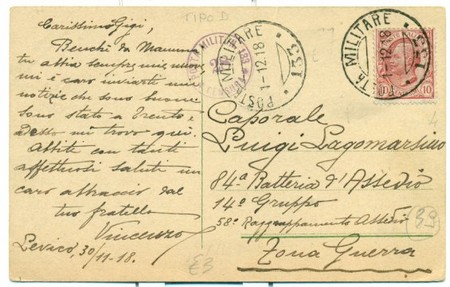 Carissimo Gigi,
Benché da Mamma
tu abbia sempre mie nuove
mi è caro inviarti mie
notizie che sono buone
sono stato a Trento e
adesso mi trovo qui.
Abbiti con tanti
affettuosi saluti un
caro abbraccio dal
tuo fratello
Vincenzo
Levico, 30/11-18.
TIPO D
POSTA MILITARE
1-12.18
POSTA MILITARE
1-12.18
10
Caporale
Luigi Lagomarsino
84ª Batteria d'Assedio
14º Gruppo
58º Raggruppamento Assedio
Zona Guerra
39
£3